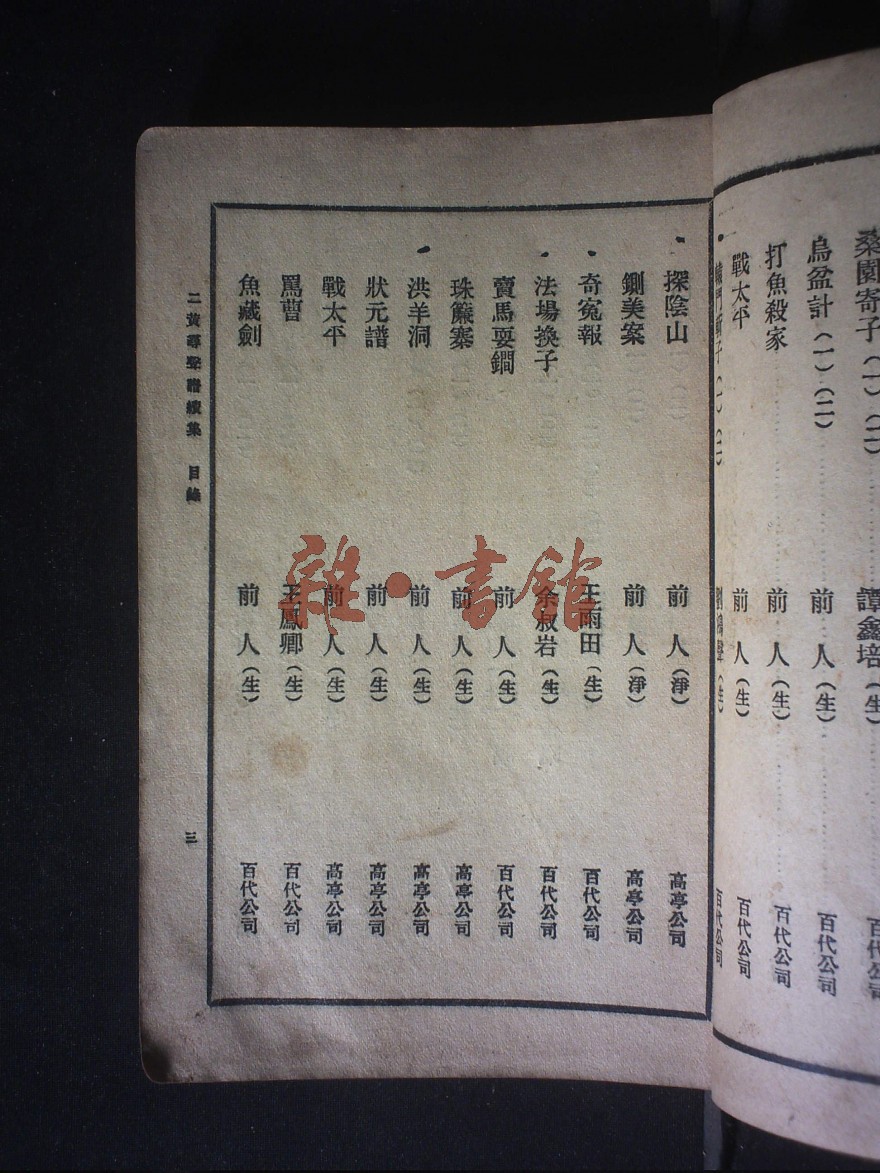 桑園寄子(一)(二) 譚鑫培(生) 百代公司
烏盆計(一)(二) 前人(生) 百代公司
打魚殺家 前人(生) 百代公司
戰太平 前人(生) 百代公司
轅門斬子(一)(二) 劉鴻聲(生) 百代公司
探陰山 前人(淨) 高亭公司
鍘美案 前人(淨) 高亭公司
奇冤報 王雨田(生) 百代公司
法場換子 余叔岩(生) 百代公司
賣馬耍鐧 前人(生) 百代公司
珠簾寨 前人(生) 高亭公司
洪羊洞 前人(生) 高亭公司
狀元譜 前人(生) 高亭公司
戰太平 前人(生) 高亭公司
罵曹 王鳳卿(生) 百代公司
魚藏劍 前人(生) 百代公司
二黃尋聲譜續集 目錄 三
雜·書館